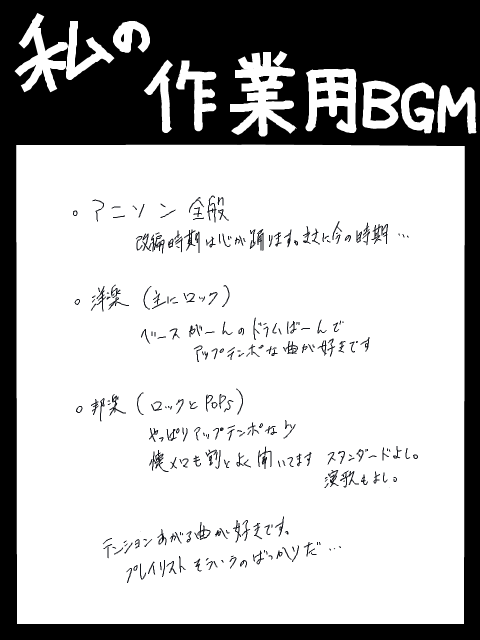 私の
作業用BGM
○ アニソン 全般
改編時期は心が踊ります。まさに今の時期…
○ 洋楽(主にロック)
ベースがーんのドラムばーんで
アップテンポな曲が好きです
○ 邦楽(ロックとPOPS)
やっぱりアップテンポな
懐メロも割とよく聞いてます スタンダードよし。
演歌もよし。
テンションあがる曲が好きです。
プレイリストそういうのばっかりだ…